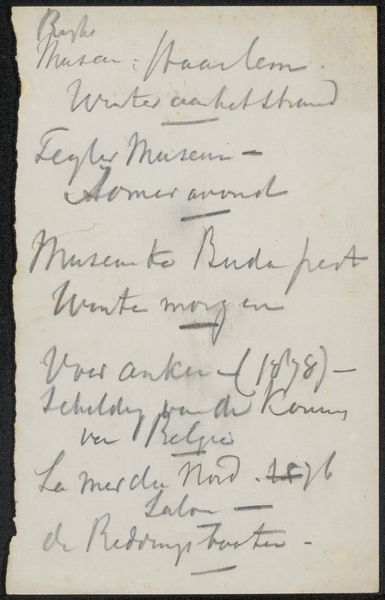 Musea: Haarlem.
Winter aan het strand
Teyler Museum -
Zomeravond
Museum te Budapest
Wintermorgen
Voor anker - (1878) -
Schildery van de Koning
van Belgie
La mer du Nord. 1876
Salon -
de Reddingsbooten -